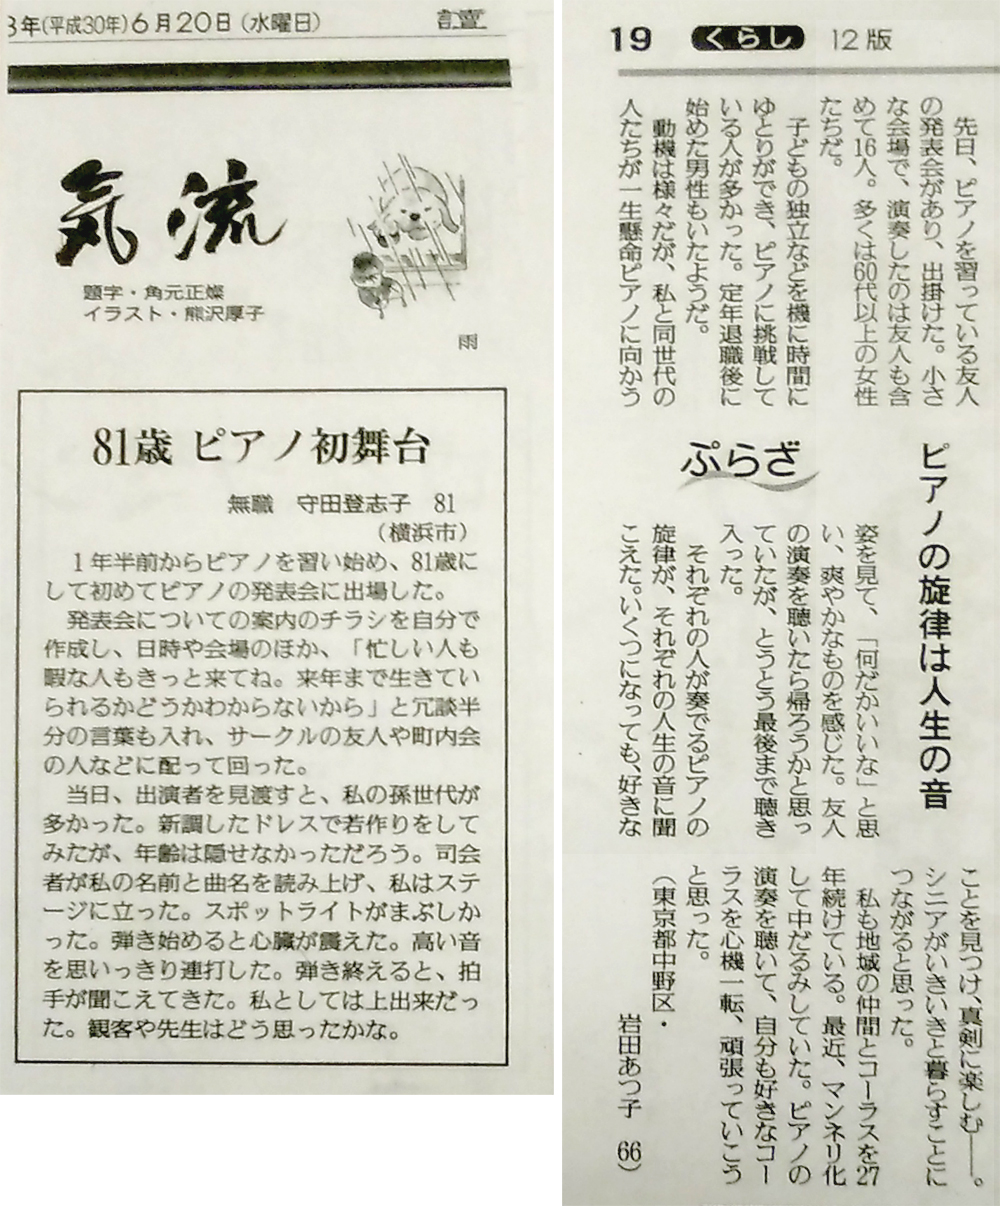 8年(平成30年)6月20日(水曜日)
讀
気流
題字・角元正燦
イラスト・熊沢厚子
雨
81歳 ピアノ初舞台
無職 守田登志子 81
(横浜市)
1年半前からピアノを習い始め、81歳に
して初めてピアノの発表会に出場した。
発表会についての案内のチラシを自分で
作成し、日時や会場のほか、「忙しい人も
暇な人もきっと来てね。来年まで生きてい
られるかどうかわからないから」と冗談半
分の言葉も入れ、サークルの友人や町内会
の人などに配って回った。
当日、出演者を見渡すと、私の孫世代が
多かった。新調したドレスで若作りをして
みたが、年齢は隠せなかっただろう。司会
者が私の名前と曲名を読み上げ、私はステ
ージに立った。スポットライトがまぶしか
った。弾き始めると心臓が震えた。高い音
を思いっきり連打した。弾き終えると、拍
手が聞こえてきた。私としては上出来だっ
た。観客や先生はどう思ったかな。
19 くらし 12版
ぷらざ
ピアノの旋律は人生の音
先日、ピアノを習っている友人
の発表会があり、出掛けた。小さ
な会場で、演奏したのは友人も含
めて16人。多くは60代以上の女性
たちだ。
子どもの独立などを機に時間に
ゆとりができ、ピアノに挑戦して
いる人が多かった。定年退職後に
始めた男性もいたようだ。
動機は様々だが、私と同世代の
人たちが一生懸命ピアノに向かう
姿を見て、「何だかいいな」と思
い、爽やかなものを感じた。友人
の演奏を聴いたら帰ろうかと思っ
ていたが、とうとう最後まで聴き
入った。
それぞれの人が奏でるピアノの
旋律が、それぞれの人生の音に聞
こえた。いくつになっても、好きな
ことを見つけ、真剣に楽しむ――。
シニアがいきいきと暮らすことに
つながると思った。
私も地域の仲間とコーラスを27
年続けている。最近、マンネリ化
して中だるみしていた。ピアノの
演奏を聴いて、自分も好きなコー
ラスを心機一転、頑張っていこう
と思った。
(東京都中野区・
岩田あつ子 66)